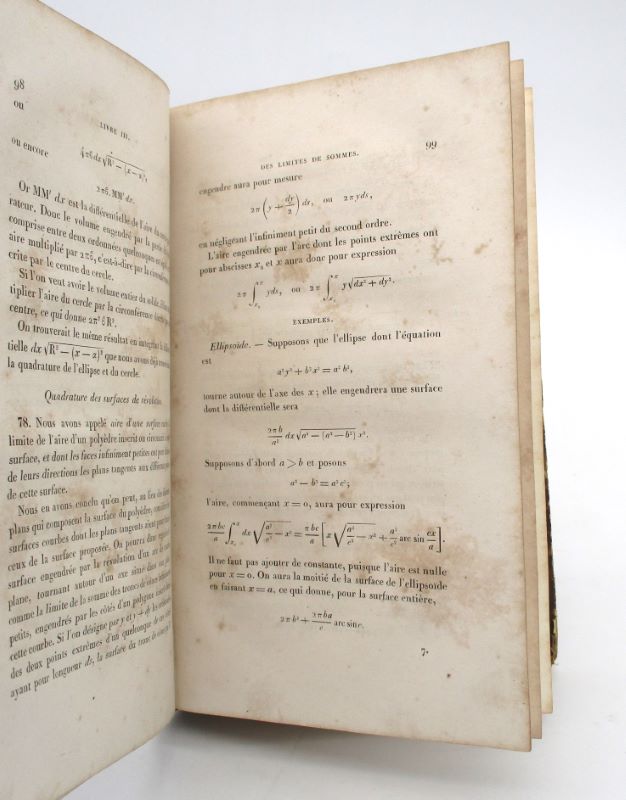 98
LIVRE III.
ou
ou encore
2πδ. MM' dx.
Or MM' dx est la différentielle de l'aire du
rateur. Donc le volume engendré par la
comprise entre deux ordonnées quelconques
aire multiplié par 2πδ, c'est-à-dire par la
crite par le centre du cercle.
Si l'on veut avoir le volume entier du solide,
tiplier l'aire du cercle par la circonférence
centre, ce qui donne 2π² δ R².
On trouverait le même résultat en
tielle dx√R² — (x — α)² que nous avons déjà
la quadrature de l'ellipse et du cercle.
Quadrature des surfaces de révolution.
78. Nous avons appelé aire d'une surface
limite de l'aire d'un polyèdre inscrit ou
surface, et dont les faces infiniment petites ont
de leurs directions les plans tangents aux
de cette surface.
Nous en avons conclu qu'on peut, au lieu des
plans qui composent la surface du polyèdre,
surfaces courbes dont les plans tangents
ceux de la surface proposée. On pourra donc
surface engendrée par la révolution d'un arc de
plane, tournant autour d'un axe situé dans
comme la limite de la somme des troncs de cônes
petits, engendrés par les côtés d'un polygone
cette courbe. Si l'on désigne par y et y + dy les
des deux points extrêmes d'un quelconque de
ayant pour longueur ds, la surface du tronc de cône
DES LIMITES DE SOMMES. 99
engendre aura pour mesure
2π (y + dy/2) ds, ou 2π yds,
en négligeant l'infiniment petit du second ordre.
L'aire engendrée par l'arc dont les points extrêmes ont
pour abscisses x₀ et x aura donc pour expression
2π ∫ₓ₀ˣ yds, ou 2π ∫ₓ₀ˣ y√dx² + dy².
EXEMPLES.
Ellipsoïde. — Supposons que l'ellipse dont l'équation
est
a² y² + b² x² = a² b²,
tourne autour de l'axe des x; elle engendrera une surface
dont la différentielle sera
2πb/a² dx√a⁴ — (a² — b²) x².
Supposons d'abord a > b et posons
a² — b² = a² e²;
l'aire, commençant x = 0, aura pour expression
Il ne faut pas ajouter de constante, puisque l'aire est nulle
pour x = 0. On aura la moitié de la surface de l'ellipsoïde
en faisant x = a, ce qui donne, pour la surface entière,
2πb² + 2πba/e arc sin e.
7.